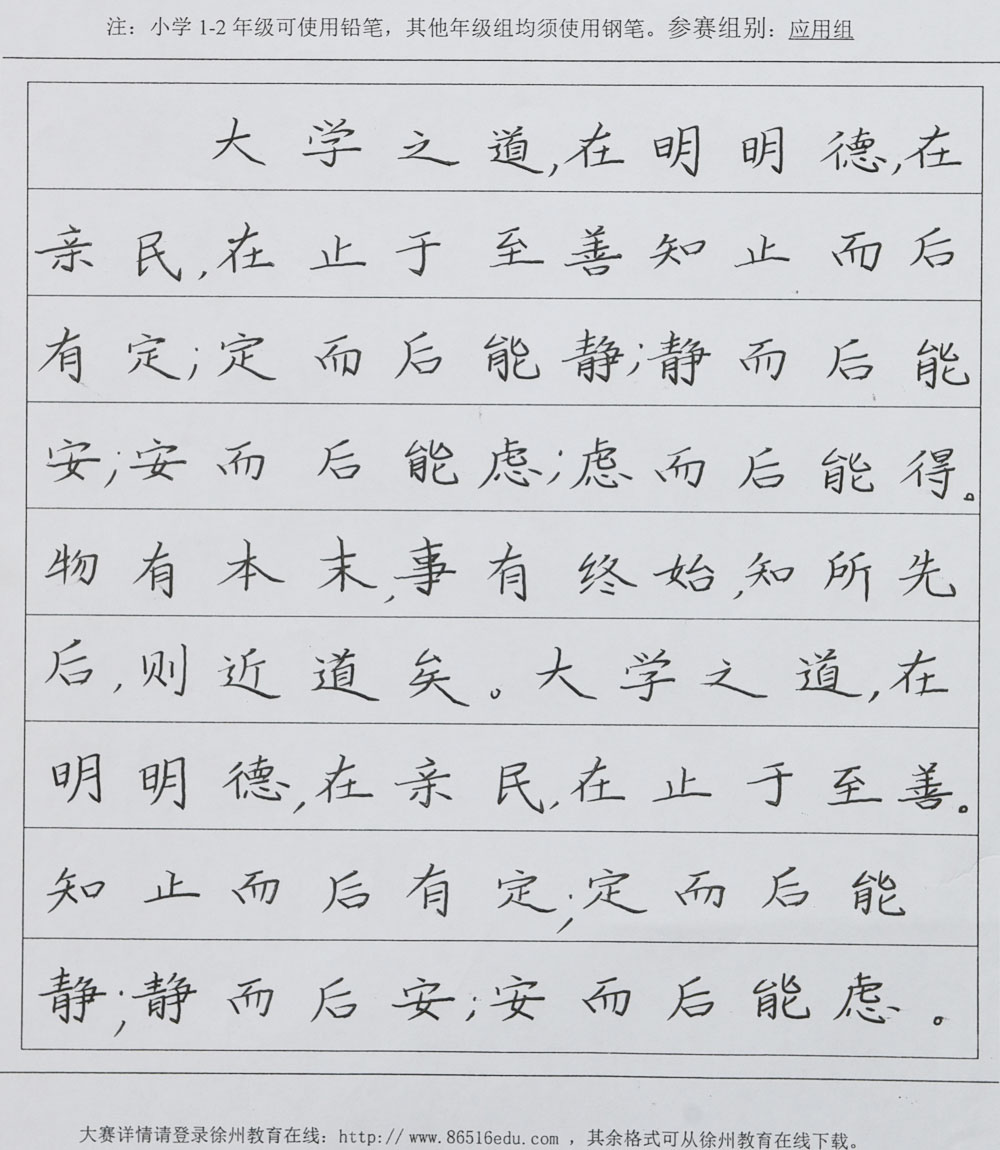 注：小学 1-2 年级可使用铅笔，其他年级组均须使用钢笔。参赛组别：应用组
大学之道,在明明德,在
亲民,在止于至善知止而后
有定;定而后能静;静而后能
安;安而后能虑;虑而后能得。
物有本末,事有终始,知所先
后,则近道矣。大学之道,在
明明德,在亲民,在止于至善。
知止而后有定;定而后能
静;静而后安;安而后能虑。
大赛详情请登录徐州教育在线：http://www.86516edu.com ，其余格式可从徐州教育在线下载。